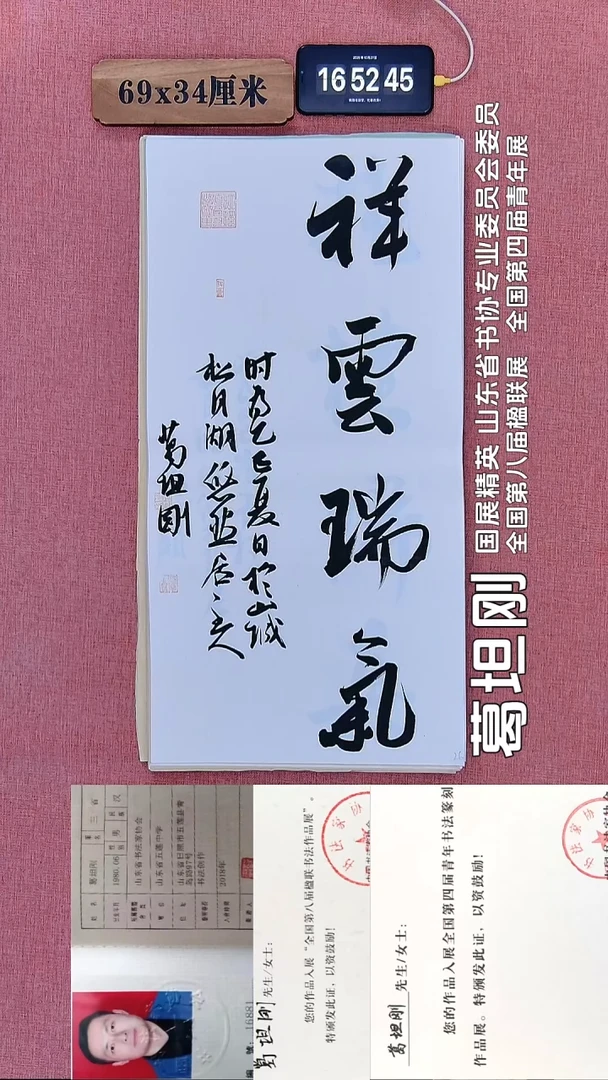 69x34厘米
2025年10月27日
16 52 45
祥雲瑞氣
时为乙巳夏日於山城
松月湖悠然居主人
葛坦刚
葛坦刚
国展精英 山东省书协专业委员会委员
全国第八届楹联展 全国第四届青年展
姓名 葛坦刚
山东省书法家协会
山东省五莲中学
书法创作
2018年
16881
葛坦刚 先生/女士:
您的作品入展“全国第八届楹联书法作品展”。
特颁发此证,以资鼓励!
葛坦刚 先生/女士:
您的作品入展全国第四届青年书法篆刻
作品展。特颁发此证,以资鼓励!